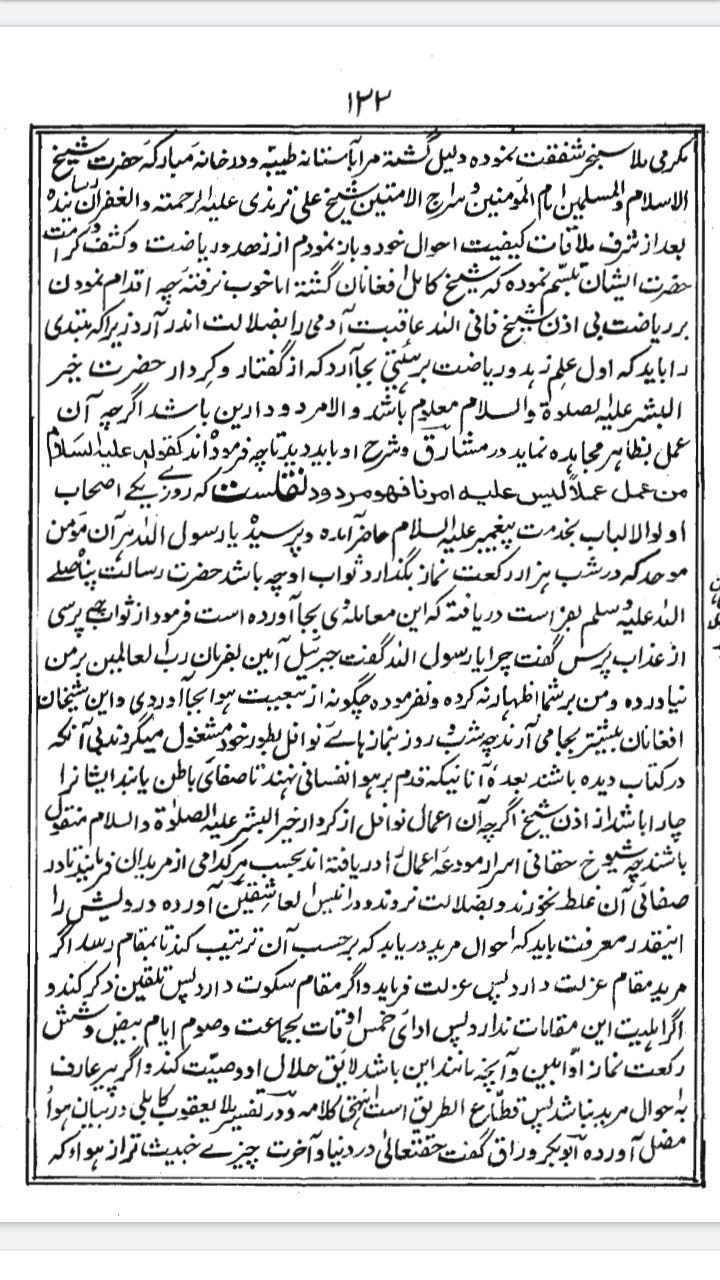 ۱۲۲
مکرمی ملا سنجر شفقت نموده دلیل گشته مرا بآستانه طیبه و در خانه مبارکه حضرت شیخ
الاسلام والمسلمین امام المؤمنین و سراج الامتین شیخ علی ترمذی علیه الرحمته والغفران رسانده
بعد از شرف ملاقات کیفیت احوال خود و باز نمودم از زهد و ریاضت و کشف و کرامت
حضرت ایشان تبسم نموده که شیخ کامل افغانان گشته اما خوب نرفته چه اقدام نمودن
بر ریاضت بی اذن شیخ فانی الله عاقبت آدمی را بضلالت اندر آرد زیرا که مبتدی
را باید که اول علم زهد و ریاضت برسنتی بجا آرد که از گفتار و کردار حضرت خیر
البشر علیه الصلوة والسلام معلوم باشد والا مردود دارین باشد اگرچه آن
عمل بظاهر مجاهده نماید در مشارق و شرح او باید دید تا چه فرموده‌اند کقوله علیه السلام
من عمل عملاً لیس علیه امرنا فهو مردود نقلست که روزے یکے اصحاب
اولوالالباب بخدمت پیغمبر علیه السلام حاضر آمده و پرسید یا رسول الله هر آن مؤمن
موحد که در شب هزار رکعت نماز بگذارد ثواب او چه باشد حضرت رسالت پناه صلے
الله علیه وسلم بفراست دریافته که این معامله وی بجا آورده است فرمود از ثواب چه پرسی
از عذاب پرس گفت چرا یا رسول الله گفت جبرئیل آمین بفرمان رب العالمین بر من
نیاورده و من بر شما اظهار نه کرده و نفرموده چگونه از تبعیت هوا بجا آوردی و این شیخان
افغانان بیشتر بجا می آرند چه شب و روز نمازهاے نوافل بطور خود مشغول میگردند بی آنکه
در کتاب دیده باشند بعده آنانیکه قدم بر هوا نفسانی نهند تا صفای باطن یابند ایشانرا
چاره باشد از اذن شیخ اگرچه آن اعمال نوافل از کردار خیر البشر علیه الصلوٰة والسلام منقول
باشند چه شیوخ حقانی اسرار مودعه اعمال را دریافته‌اند بحسب هر کدامی از مریدان فرمایند تا در
صفائی آن غلط نخورند و بضلالت نروند و در انیس العاشقین آورده درویش را
اینقدر معرفت باید که احوال مرید دریابد که برحسب آن ترتیب کند تا بمقام رسد اگر
مرید مقام عزلت دارد پس عزلت فرماید و اگر مقام سکوت دارد پس تلقین ذکر کند و
اگر اهلیت این مقامات ندارد پس ادای خمس اوقات بجماعت و صوم ایام بیض و شش
رکعت نماز اوّابین و آنچه مانند این باشد لایق حلال او وصیّت کند و اگر پیر عارف
به احوال مرید نباشد پس قطّاع الطریق است انتهی کلامه و در تفسیر ملا یعقوب کابلی در بیان هواُ
مضل آورده ابوبکر وراق گفت حقتعالیٰ در دنیا و آخرت چیزے خبیث‌تر از هواء که